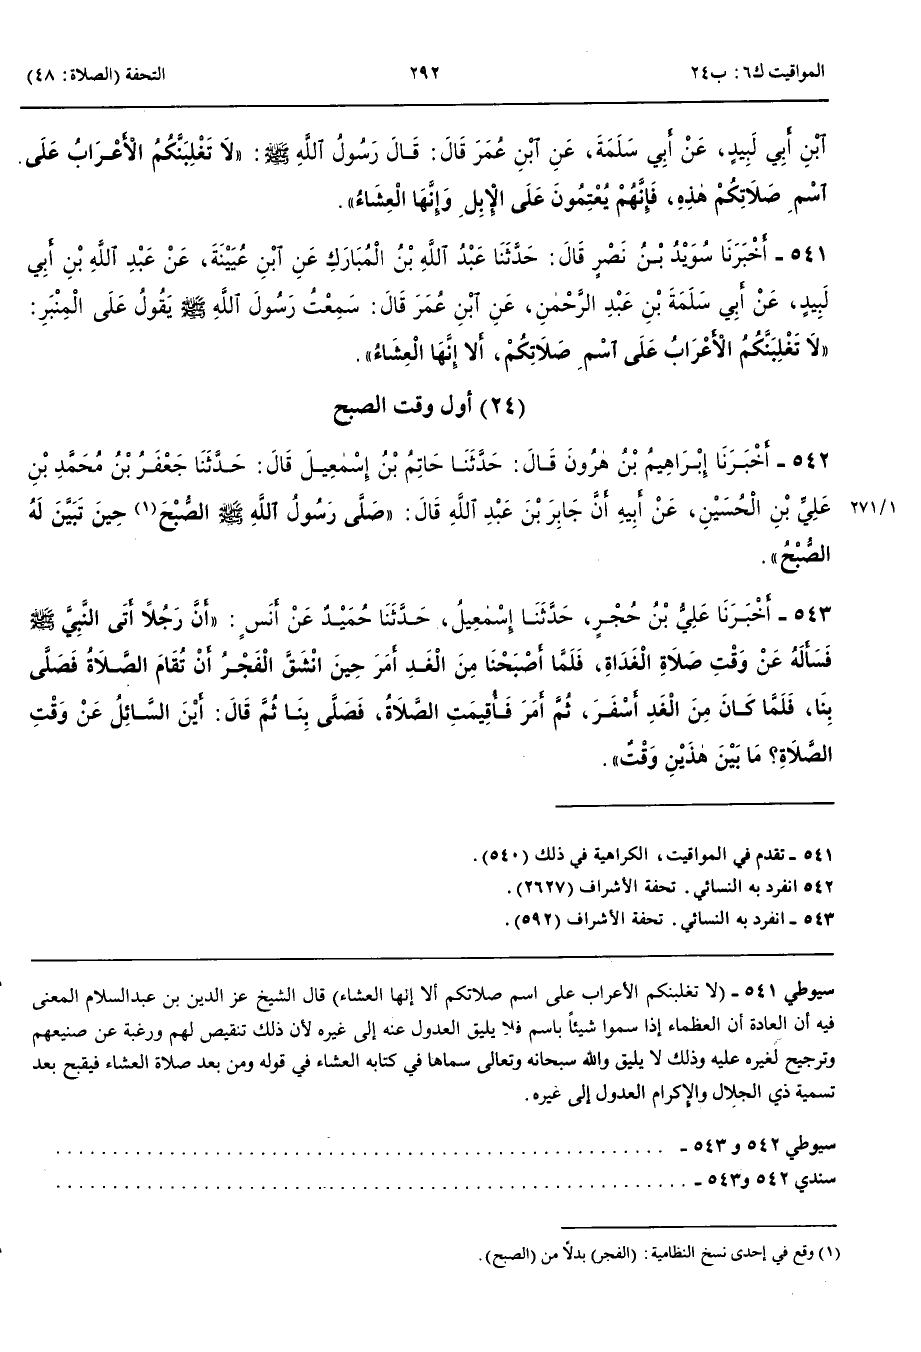 المواقيت ك٦: ب٢٤ ٢٩٢ التحفة (الصلاة: ٤٨)
ٱبْنِ أَبِي لَبِيدٍ، عَنْ أَبِي سَلَمَةَ، عَنِ ٱبْنِ عُمَرَ قَالَ: قَالَ رَسُولُ ٱللَّهِ ﷺ: «لَا تَغْلِبَنَّكُمُ الْأَعْرَابُ عَلَى
ٱسْمِ صَلَاتِكُمْ هٰذِهِ، فَإِنَّهُمْ يُعْتِمُونَ عَلَى الْإِبِلِ وَإِنَّهَا الْعِشَاءُ».
٥٤١ ـ أَخْبَرَنَا سُوَيْدُ بْنُ نَصْرٍ قَالَ: حَدَّثَنَا عَبْدُ اللَّهِ بْنُ الْمُبَارَكِ عَنِ ٱبْنِ عُيَيْنَةَ، عَنْ عَبْدِ ٱللَّهِ بْنِ أَبِي
لَبِيدٍ، عَنْ أَبِي سَلَمَةَ بْنِ عَبْدِ الرَّحْمٰنِ، عَنِ ٱبْنِ عُمَرَ قَالَ: سَمِعْتُ رَسُولَ ٱللَّهِ ﷺ يَقُولُ عَلَى الْمِنْبَرِ:
«لَا تَغْلِبَنَّكُمُ الْأَعْرَابُ عَلَى ٱسْمِ صَلَاتِكُمْ، أَلَا إِنَّهَا الْعِشَاءُ».
(٢٤) أول وقت الصبح
٥٤٢ ـ أَخْبَرَنَا إِبْرَاهِيمُ بْنُ هٰرُونَ قَالَ: حَدَّثَنَا حَاتِمُ بْنُ إِسْمٰعِيلَ قَالَ: حَدَّثَنَا جَعْفَرُ بْنُ مُحَمَّدِ بْنِ
عَلِيِّ بْنِ الْحُسَيْنِ، عَنْ أَبِيهِ أَنَّ جَابِرَ بْنَ عَبْدِ ٱللَّهِ قَالَ: «صَلَّى رَسُولُ ٱللَّهِ ﷺ الصُّبْحَ(١) حِينَ تَبَيَّنَ لَهُ ٢٧١/١
الصُّبْحُ».
٥٤٣ ـ أَخْبَرَنَا عَلِيُّ بْنُ حُجْرٍ، حَدَّثَنَا إِسْمٰعِيلُ، حَدَّثَنَا حُمَيْدٌ عَنْ أَنَسٍ: «أَنَّ رَجُلًا أَتَى النَّبِيَّ ﷺ
فَسَأَلَهُ عَنْ وَقْتِ صَلَاةِ الْغَدَاةِ، فَلَمَّا أَصْبَحْنَا مِنَ الْغَدِ أَمَرَ حِينَ انْشَقَّ الْفَجْرُ أَنْ تُقَامَ الصَّلَاةُ فَصَلَّى
بِنَا، فَلَمَّا كَانَ مِنَ الْغَدِ أَسْفَرَ، ثُمَّ أَمَرَ فَأُقِيمَتِ الصَّلَاةُ، فَصَلَّى بِنَا ثُمَّ قَالَ: أَيْنَ السَّائِلُ عَنْ وَقْتِ
الصَّلَاةِ؟ مَا بَيْنَ هٰذَيْنِ وَقْتٌ».
٥٤١ ـ تقدم في المواقيت، الكراهية في ذلك (٥٤٠).
٥٤٢ انفرد به النسائي. تحفة الأشراف (٢٦٢٧).
٥٤٣ ـ انفرد به النسائي. تحفة الأشراف (٥٩٢).
سيوطي ٥٤١ ـ (لا تغلبنكم الأعراب على اسم صلاتكم ألا إنها العشاء) قال الشيخ عز الدين بن عبدالسلام المعنى
فيه أن العادة أن العظماء إذا سموا شيئاً باسم فلا يليق العدول عنه إلى غيره لأن ذلك تنقيص لهم ورغبة عن صنيعهم
وترجيح لغيره عليه وذلك لا يليق والله سبحانه وتعالى سماها في كتابه العشاء في قوله ومن بعد صلاة العشاء فيقبح بعد
تسمية ذي الجلال والإكرام العدول إلى غيره.
سيوطي ٥٤٢ و ٥٤٣ ـ . . . . . . . . . . . . . . . . . . . . . . . . . . . . . .
سندي ٥٤٢ و٥٤٣ ـ . . . . . . . . . . . . . . . . . . . . . . . . . . . . . .
(١) وقع في إحدى نسخ النظامية: (الفجر) بدلاً من (الصبح).